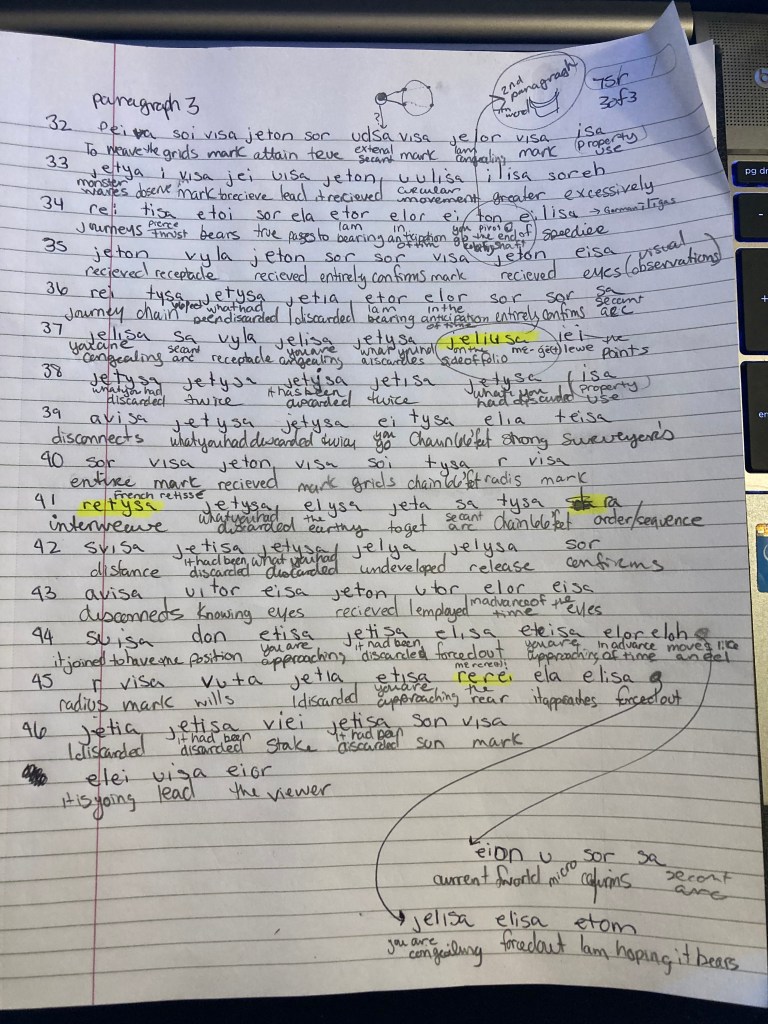 paragraph 3
2nd paragraph
word
75r
3 of 3
32 soi visa jeton sor udsa visa jelor visa isa
To weave the grids mark attain teve external secant mark I am congealing mark (property use
33 jetya i visa jei visa jeton, u ulisa ilisa soreh
monster waves observe mark brecieve lead it recieved circular movement greater excessively
34 rei tisa etoi sor ela etor elor ei ton ei lisa → German
Journeys pierce thrust bears true pages to bearing I am in anticipation of time you go pivot the end of speediee
35 jeton vyla jeton sor sor visa jeton eisa
recieved receptacle recieved entirely confirms mark recieved eyes (visual observations)
36 rei tysa jetysa jetia etor elor sor sor sa
Journey chain what had been discarded I discarded I am bearing in the anticipation of time entirely confirms secant arc
37 jelisa sa vyla jelisa jetysa jeliusa iei
you are congealing secant arc receptacle you are congealing what you had discarded on the side of folio me-get lewe points
38 jetysa jetysa jetysa jetisa jetysa (isa
what you had discarded twice it has been discarded twice what you had discarded property use
39 avisa jetysa jetysa ei tysa elia teisa
disconnects what you had discarded twice you go chain 66 feet strong surveyers
40 sor visa jeton, visa soi tysa r visa
entire mark recieved mark grids chain 66 feet radis mark
French retisse
41 retysa jetysa, elysa jeta sa tysa ra
interweave what you had discarded the earthy to get secant arc chain 66 feet order/sequence
42 svisa jetisa jetysa jelya jelysa sor
distance it had been discarded what you had discarded undeveloped release confirms
43 avisa, uitor eisa jeton, utor elor eisa
disconnects knowing eyes recieved I employed in advance of time the eyes
44 suisa don etisa jetisa elisa eteisa elor eloh
it joined to have me position you are approaching it had been discarded forced out you are approaching in advance of time moves like angel
45 r visa vuta jetia etisa rerei ela elisa
radius mark wills I discarded you are approaching me rere the rear it approaches forced out
46 jetia jetisa viei jetisa son visa
I discarded it had been discarded stake it had been discarded sun mark
elei uisa eior
it is going lead the viewer
eion u sor sa
current world micro confirms secant arc
jelisa elisa etom
you are congeiling forced out I am hoping it bears
pg dn